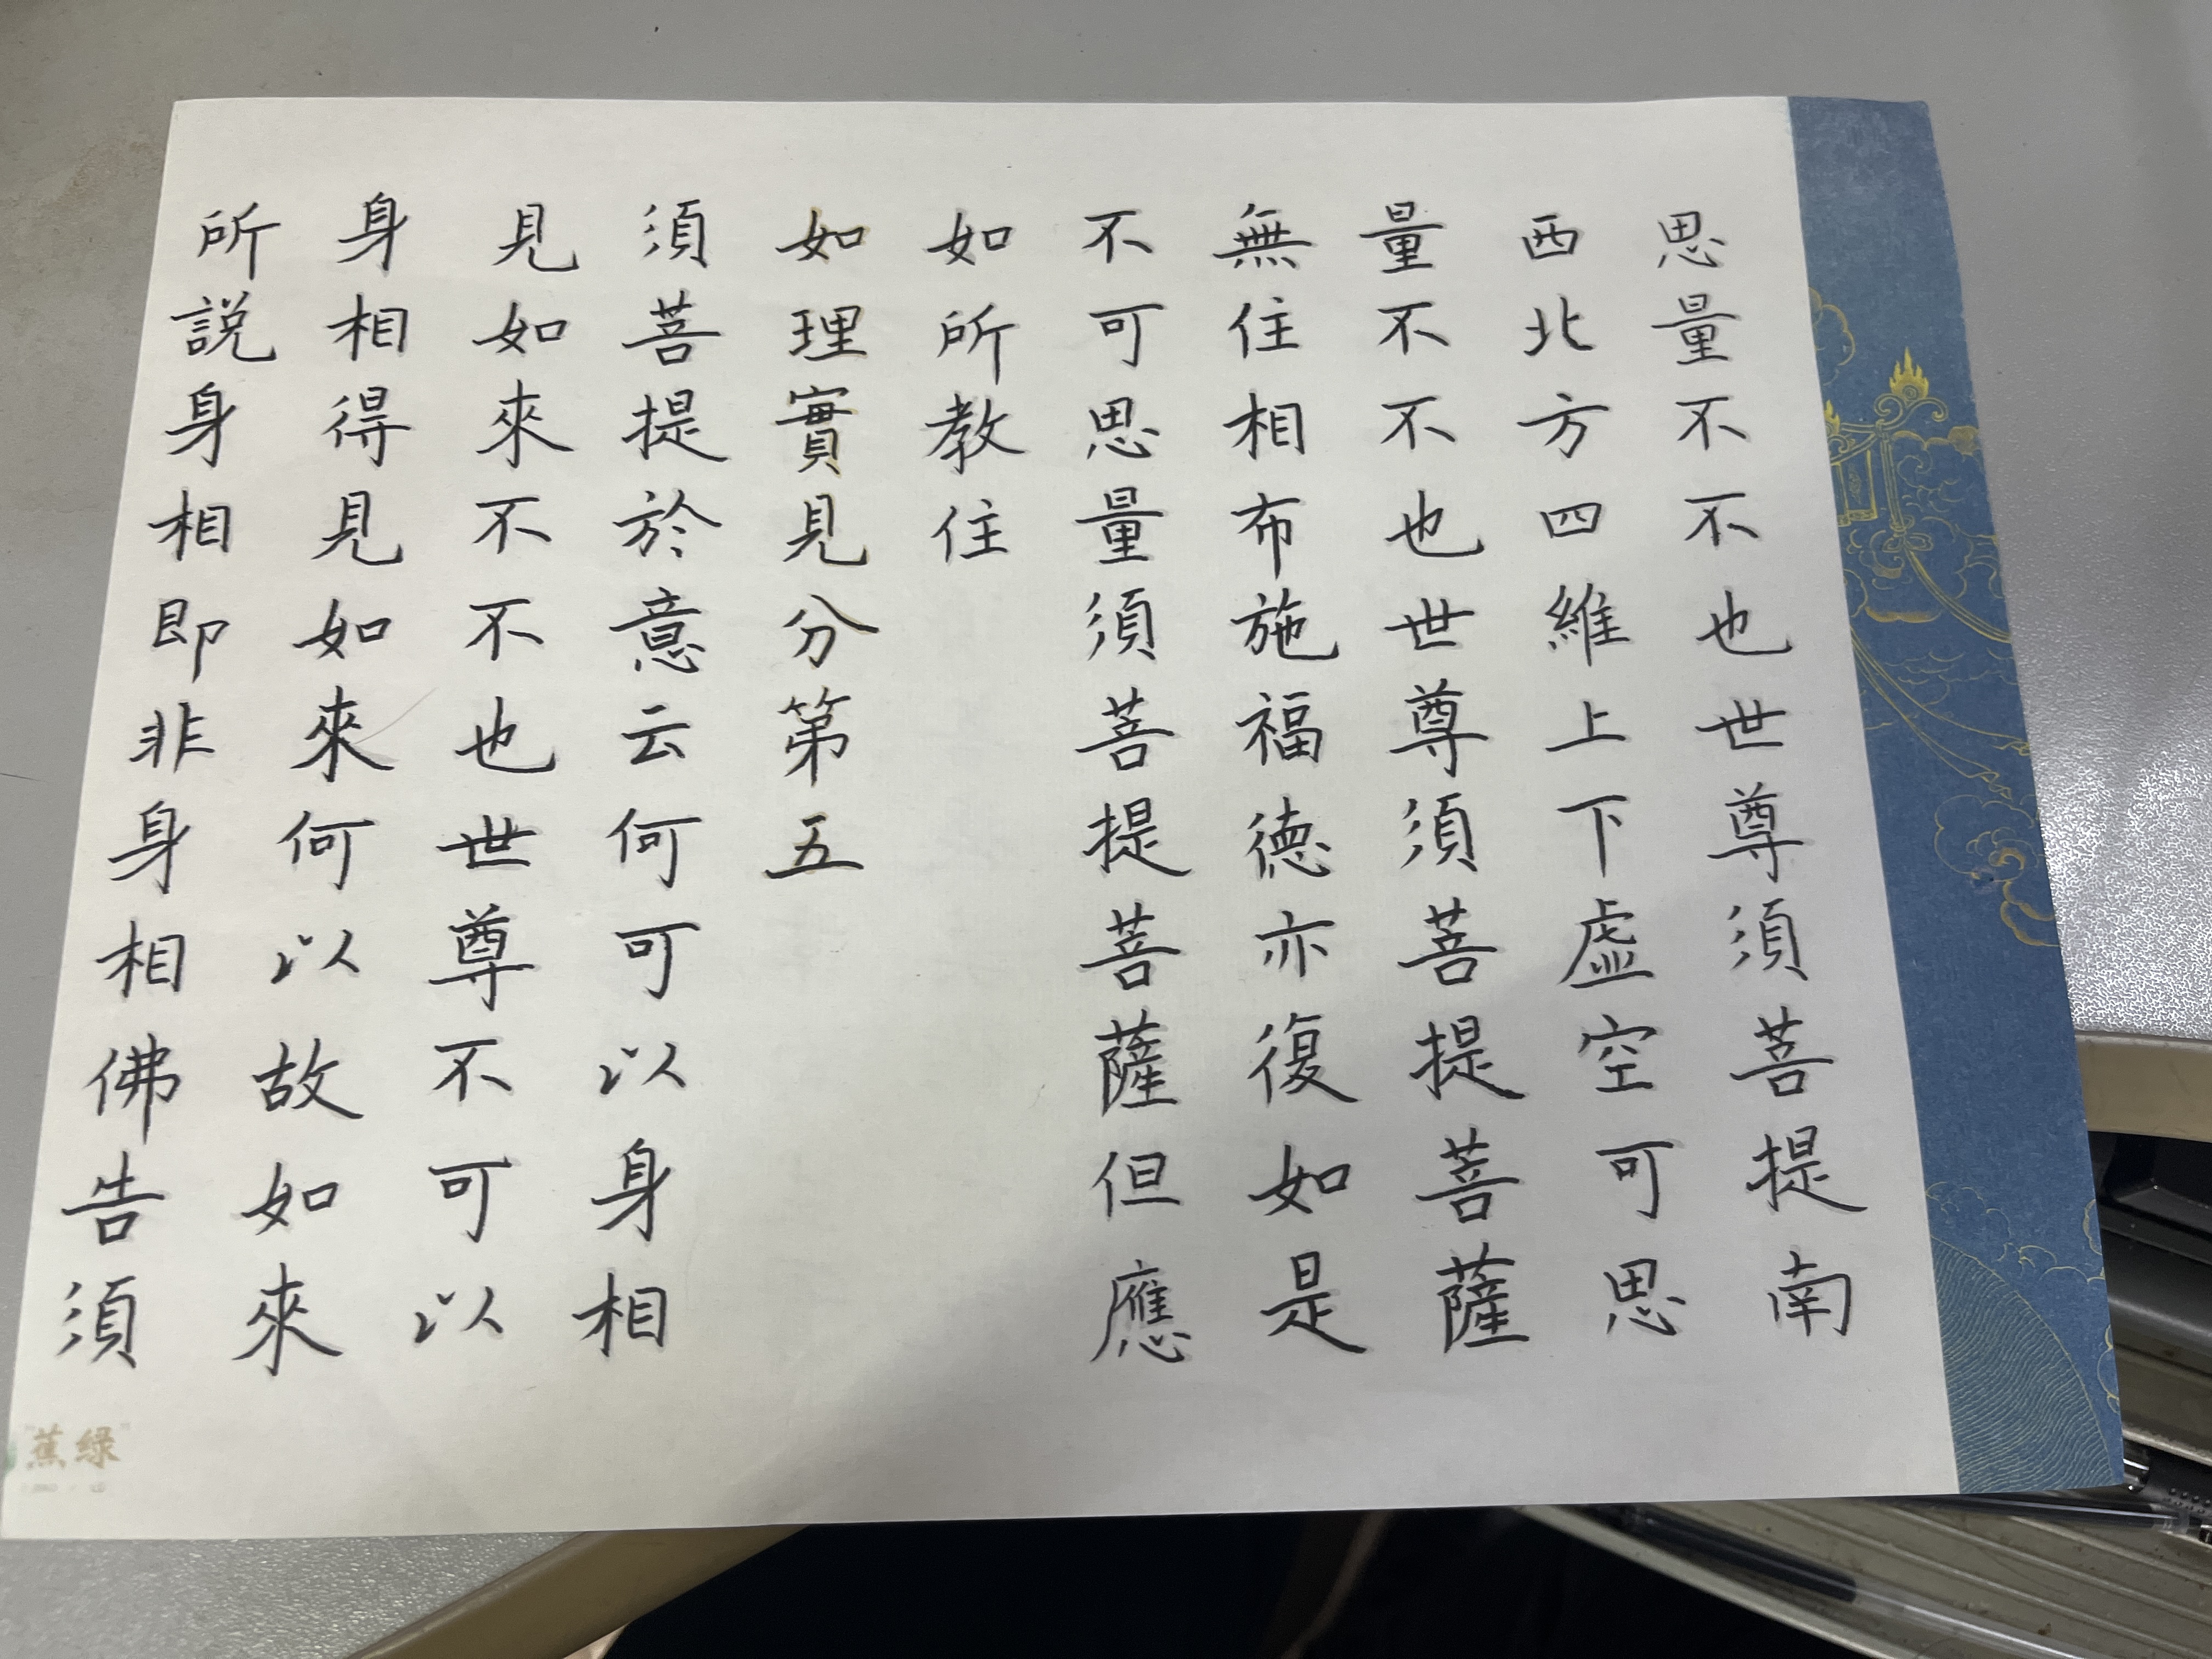 思量不不也世尊須菩提南
西北方四維上下虛空可思
量不不也世尊須菩提菩薩
無住相布施福德亦復如是
不可思量須菩提菩薩但應
如所教住
如理實見分第五
須菩提於意云何可以身相
見如來不不也世尊不可以
身相得見如來何以故如來
所說身相即非身相佛告須
"蕉緑"